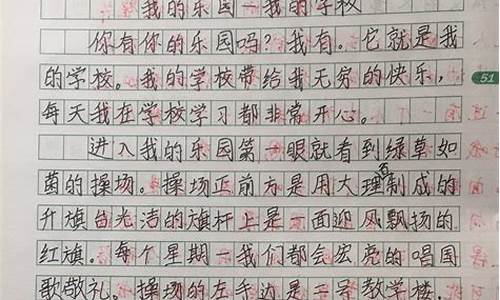 我的乐园—我的学校
你有你的乐园吗?我有。它就是我
的学校。我的学校带给我无穷的快乐,
每天我在学校学习都非常开心。
进入我的乐园第一眼就看到绿草如
茵的操场:操场正前方是用大理石制成的
升旗台光洁的旗杆上是一面迎风飘扬的
红旗。每个星期一我们都会宏亮的唱国
歌敬礼。操场的左手边是三号教学楼,
51